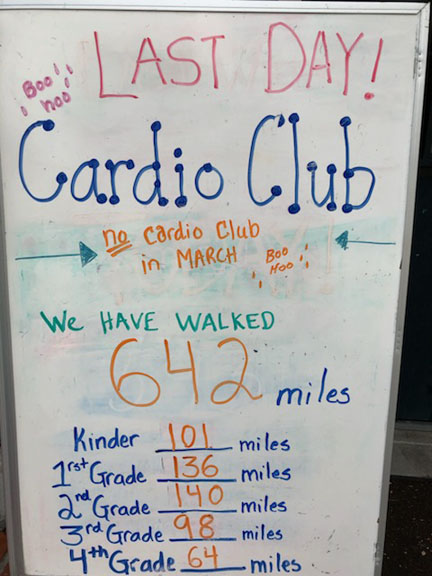 LAST DAY!
Boo
hoo
Cardio Club
no Cardio Club
in MARCH
Boo
Hoo
WE HAVE WALKED
642 miles
Kinder 101 miles
1rst Grade 136 miles
2nd Grade 140 miles
3rd Grade 98 miles
4th Grade 64 miles